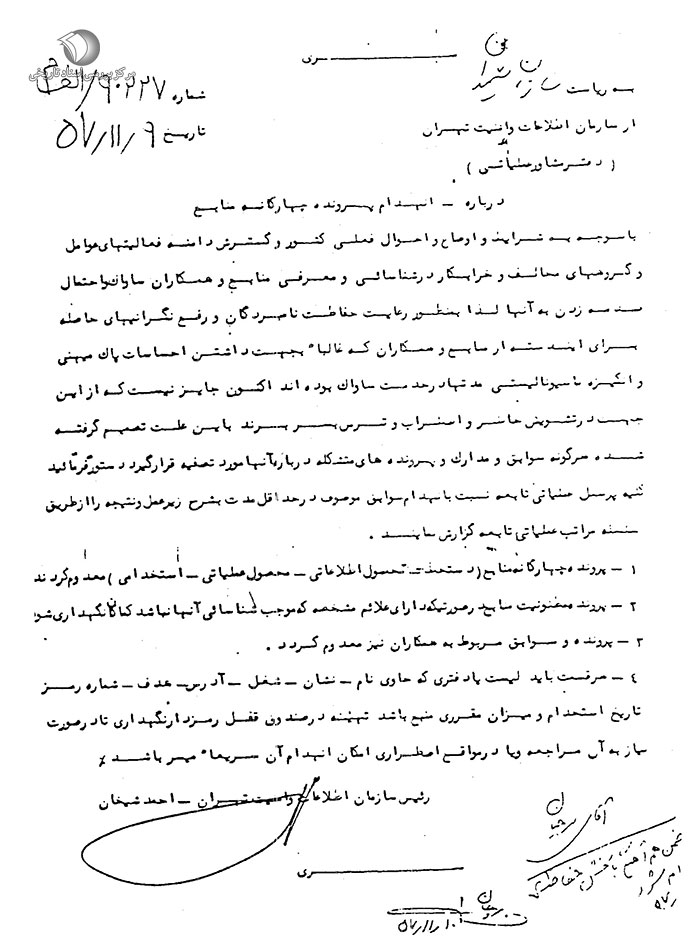 مرکز بررسی اسناد تاریخی
سری
به ریاست سازمان
شماره ۶۰۲۲۷/الف
از سازمان اطلاعات و امنیت تهران
تاریخ ۵۷/۱۱/۹
( دفتر مشاور عملیاتی )
درباره – انهدام پرونده چهارگانه منابع
با توجه به شرایط و اوضاع و احوال فعلی کشور و گسترش دامنه فعالیتهای عوامل
و گروههای مخالف و خرابکار در شناسائی و معرفی منابع و همکاران ساواک و احتمال
صدمه زدن به آنها لذا بمنظور رعایت حفاظت نامبردگان و رفع نگرانیهای حاصله
برای ایندسته از منابع و همکاران که غالبا" بجهت داشتن احساسات پاک میهنی
و انگیزه ناسیونالیستی مدتها در خدمت ساواک بوده اند اکنون جایز نیست که از این
جهت در تشویش خاطر و اضطراب و ترس بسر برند باین علت تصمیم گرفته
شده هرگونه سوابق و مدارک و پرونده های متشکله درباره آنها مورد تصفیه قرار گیرد دستور فرمائید
کلیه پرسنل عملیاتی تابعه نسبت بانهدام سوابق موصوف در حداقل مدت بشرح زیر عمل و نتیجه را از طریق
سلسله مراتب عملیاتی تابعه گزارش نمایند .
۱ – پرونده چهارگانه منابع ( دستخت – محصول اطلاعاتی – محصول عملیاتی – استخدامی ) معدوم گردند
۲ – پرونده مظنونیت منابع در صورتیکه دارای علائم مشخصه که موجب شناسائی آنها نباشد کماکان نگهداری شود
۳ – پرونده و سوابق مربوط به همکاران نیز معدوم گردد .
٤ – لیست یا دفتری که حاوی نام – نشان – شغل – آدرس – هدف – شماره رمز
تاریخ استخدام و میزان مقرری منبع باشد تهیه و در صندوق قفل رمزدار نگهداری تا در صورت
نیاز به آن مراجعه و یا در مواقع اضطراری امکان انهدام آن سریعا" میسر باشد ٪
رئیس سازمان اطلاعات و امنیت تهران – احمد شیخان
آقای
سری
۵۷/۱۱/۱۰